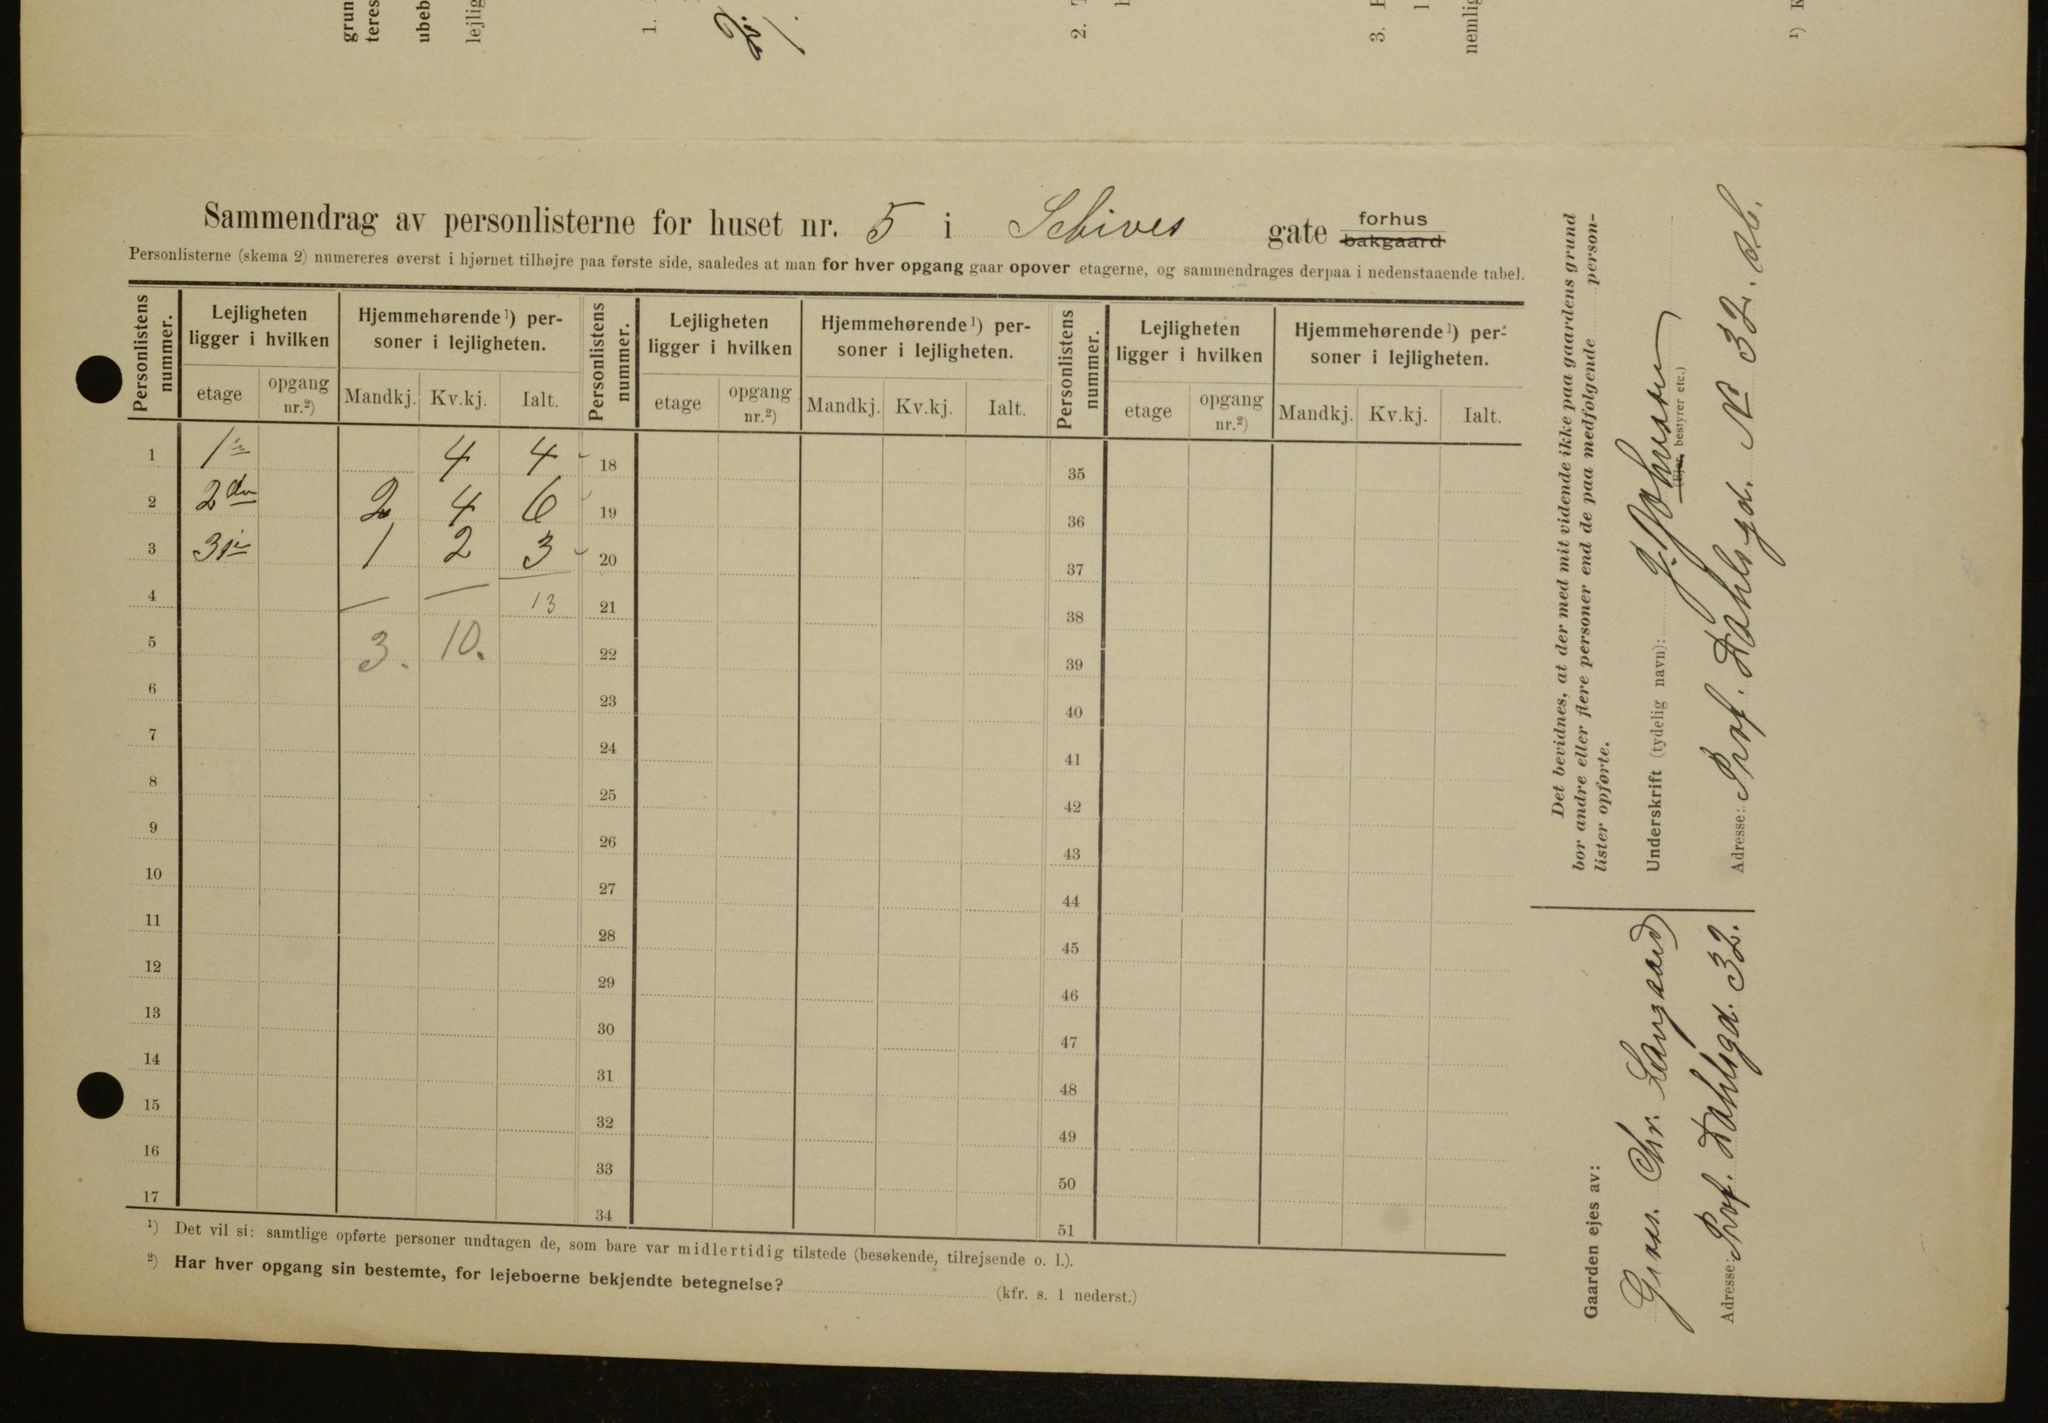 grun
teres
ubeb
lejlig
1.
2.
3.
nemlig
1) K
Sammendrag av personlisterne for huset nr. 5 i Schives gate forhus bakgaard
Personlisterne (skema 2) numereres øverst i hjørnet tilhøjre paa første side, saaledes at man for hver opgang gaar opover etagerne, og sammendrages derpaa i nedenstaaende tabel.
Personlistens nummer. Lejligheten ligger i hvilken Hjemmehørende 1) personer i lejligheten. Personlistens nummer. Lejligheten ligger i hvilken Hjemmehørende 1) personer i lejligheten. Personlistens nummer. Lejligheten ligger i hvilken Hjemmehørende 1) personer i lejligheten.
etage opgang nr.2) Mandkj. Kv.kj. Ialt. etage opgang nr.2) Mandkj. Kv.kj. Ialt. etage opgang nr.2) Mandkj. Kv.kj. Ialt.
1 1ste 4 4 18 35
2 2den 2 4 6 19 36
3 3die 1 2 3 20 37
4 13 21 38
5 3. 10. 22 39
6 23 40
7 24 41
8 25 42
9 26 43
10 27 44
11 28 45
12 29 46
13 30 47
14 31 48
15 32 49
16 33 50
17 34 51
1) Det vil si: samtlige opførte personer undtagen de, som bare var midlertidig tilstede (besøkende, tilrejsende o. l.).
2) Har hver opgang sin bestemte, for lejeboerne bekjendte betegnelse? (kfr. s. 1 nederst.)
Det bevidnes, at der med mit vidende ikke paa gaardens grund
bor andre eller flere personer end de paa medfølgende person-
lister opførte.
Underskrift (tydelig navn): J. Johnsen
(Ejer, bestyrer etc.)
Adresse: Prof. Dahlsgd. No 32.
Gaarden ejes av:
Gross. Chr. Langaard
Adresse: Prof. Dahlsgd. 32.